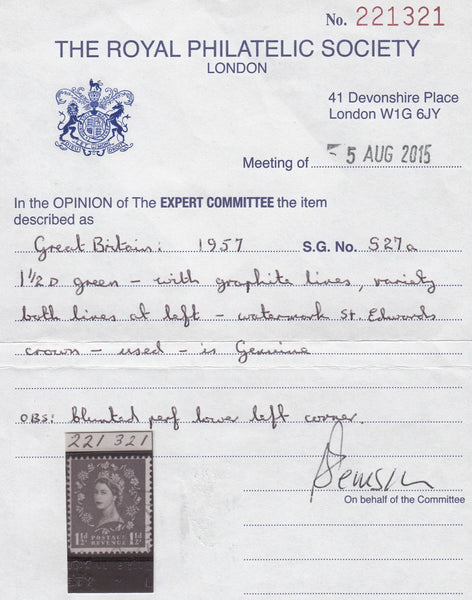 No. 221321
THE ROYAL PHILATELIC SOCIETY
LONDON
41 Devonshire Place
London W1G 6JY
Meeting of 5 AUG 2015
In the OPINION of The EXPERT COMMITTEE the item
described as
Great Britain: 1957 S.G. No. S27a
1½D green - with graphite lines, variety
both lines at left - watermark St Edwards
crown - used - is Genuine
OBS: blunted perf lower left corner.
221 321
On behalf of the Committee
1½d POSTAGE REVENUE 1½d